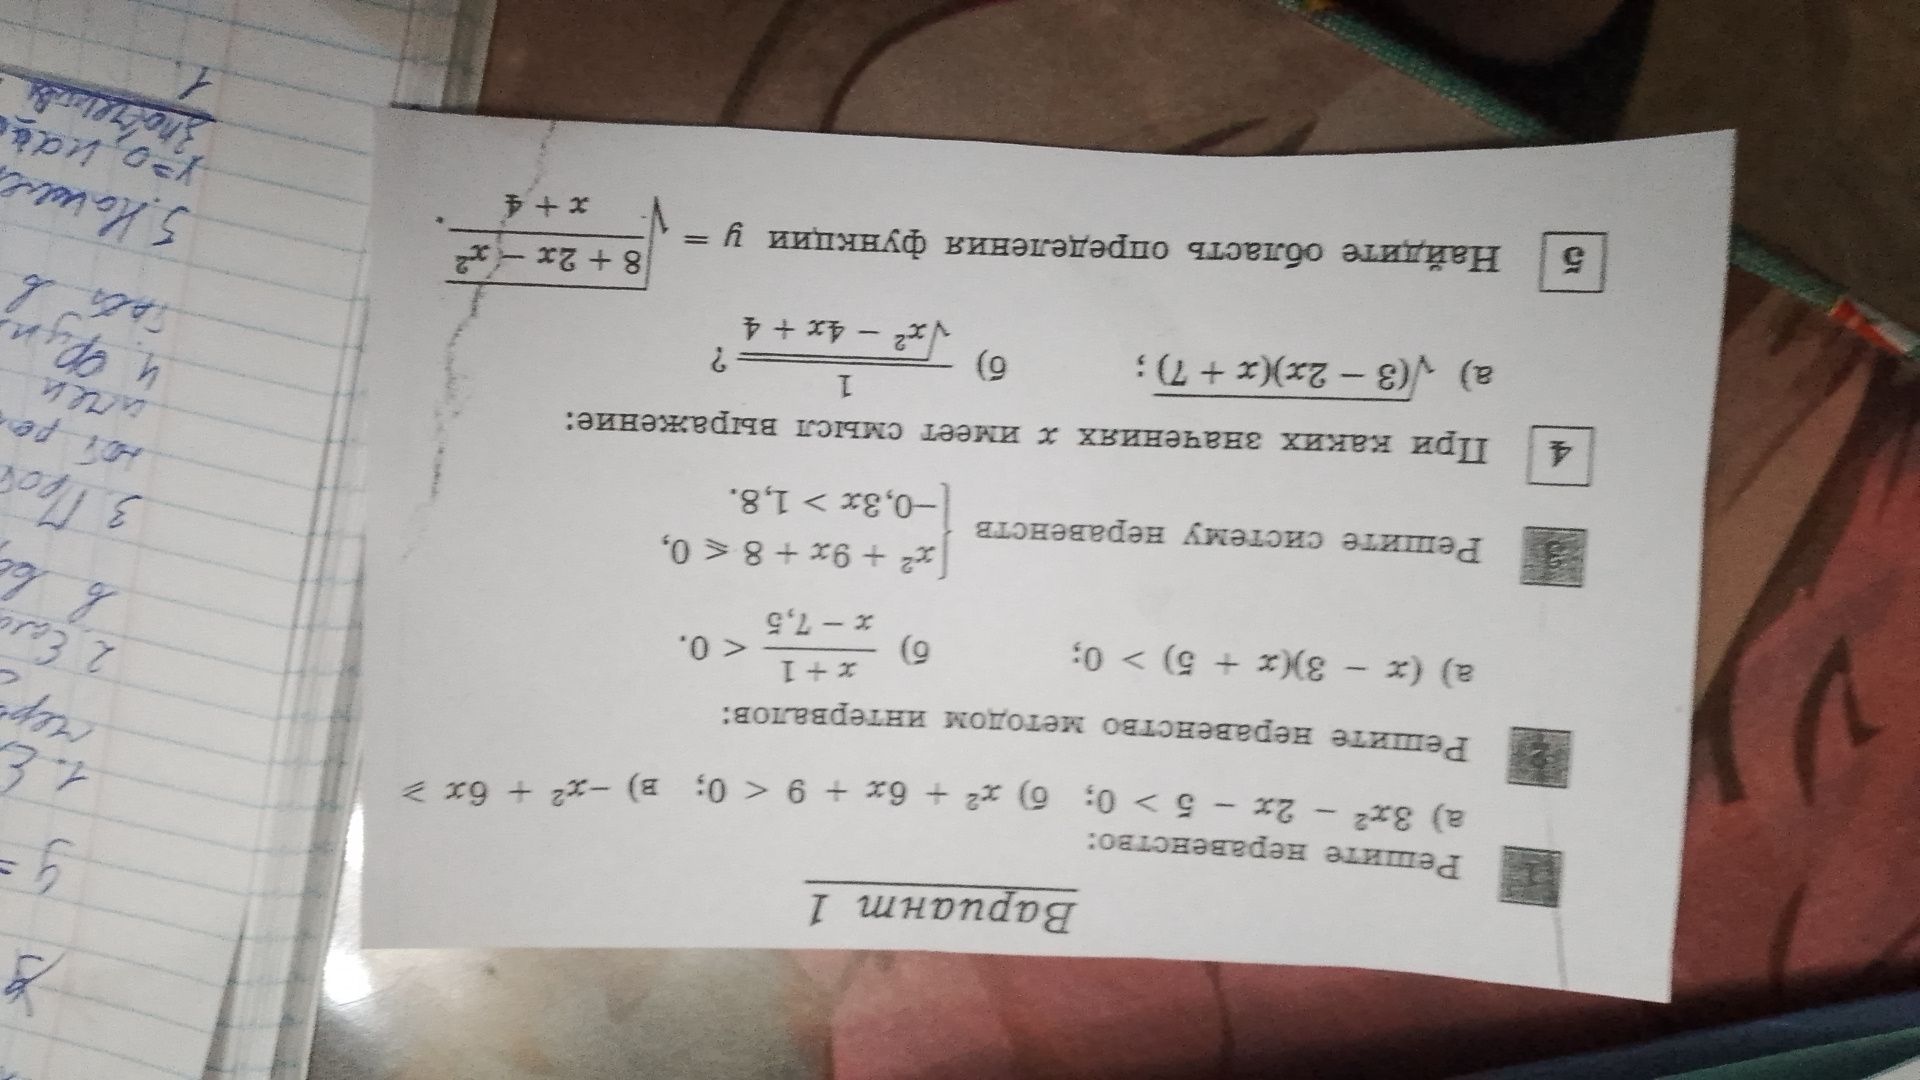 Вариант 1
1 Решите неравенство:
а) 3x² − 2x − 5 > 0; б) x² + 6x + 9 < 0; в) −x² + 6x ⩾
2 Решите неравенство методом интервалов:
а) (x − 3)(x + 5) > 0; б) (x + 1)/(x − 7,5) < 0.
3 Решите систему неравенств { x² + 9x + 8 ⩽ 0,
−0,3x > 1,8.
4 При каких значениях x имеет смысл выражение:
а) √((3 − 2x)(x + 7)); б) 1/√(x² − 4x + 4) ?
5 Найдите область определения функции y = √((8 + 2x − x²)/(x + 4)).
y =
2.
3. Про
4. фун
y=0
1